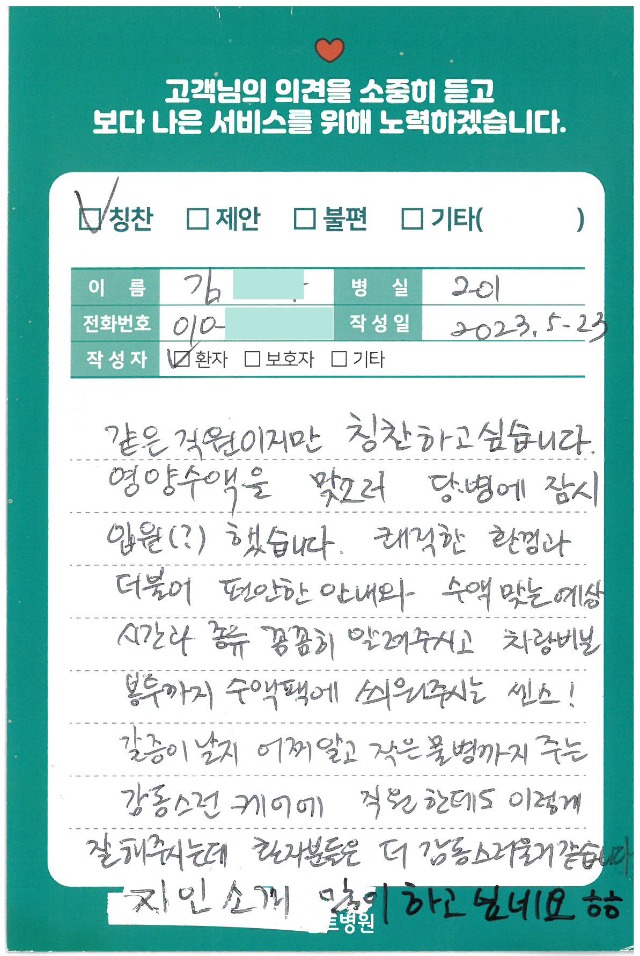 고객님의 의견을 소중히 듣고
보다 나은 서비스를 위해 노력하겠습니다.
칭찬 제안 불편 기타( )
이 름 김 병 실 201
전화번호 010- 작성일 2023. 5-23
작성자 환자 보호자 기타
같은 직원이지만 칭찬하고싶습니다.
영양수액을 맞으러 당병에 잠시
입원(?) 했습니다. 쾌적한 환경과
더불어 편안한 안내와 수액 맞는 예상
시간과 종류 꼼꼼히 알려주시고 차랑비닐
봉투까지 수액팩에 씌워주시는 센스!
갈증이 날지 어찌알고 작은 물병까지 주는
감동스런 케어에 직원한테도 이렇게
잘해주시는데 환자분들은 더 감동스러울거같습니다
지인소개 많이하고싶네요 ㅎㅎ
트병원